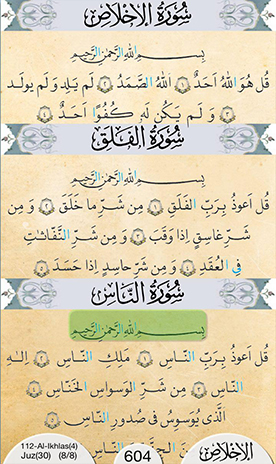 سُورَةُ الإِخْلَاصِ
بِسْمِ اللهِ الرَّحْمٰنِ الرَّحِيْمِ
قُل هُوَ اللهُ اَحَدٌ ١ اَللهُ الصَّمَدُ ٢ لَم يَلِد وَ لَم يولَد
٣ وَ لَم يَكُن لَه‌ كُفُوًا اَحَدٌ ٤
سُورَةُ الفَلَقِ
بِسْمِ اللهِ الرَّحْمٰنِ الرَّحِيْمِ
قُل اَعوذُ بِرَبِّ الفَلَقِ ١ مِن شَرِّ ما خَلَقَ ٢ وَ مِن
شَرِّ غاسِقٍ اِذا وَقَبَ ٣ وَ مِن شَرِّ النَّفّاثاتِ
فِي العُقَدِ ٤ وَ مِن شَرِّ حاسِدٍ اِذا حَسَدَ ٥
سُورَةُ النَّاسِ
بِسْمِ اللهِ الرَّحْمٰنِ الرَّحِيْمِ
قُل اَعوذُ بِرَبِّ النّاسِ ١ مَلِكِ النّاسِ ٢ اِلٰهِ
النّاسِ ٣ مِن شَرِّ الوَسواسِ الخَنّاسِ ٤
اَلَّذي يُوَسوِسُ في صُدورِ النّاسِ
112-Al-Ikhlas(4)
Juz(30) (8/8)
604
الإخلاص